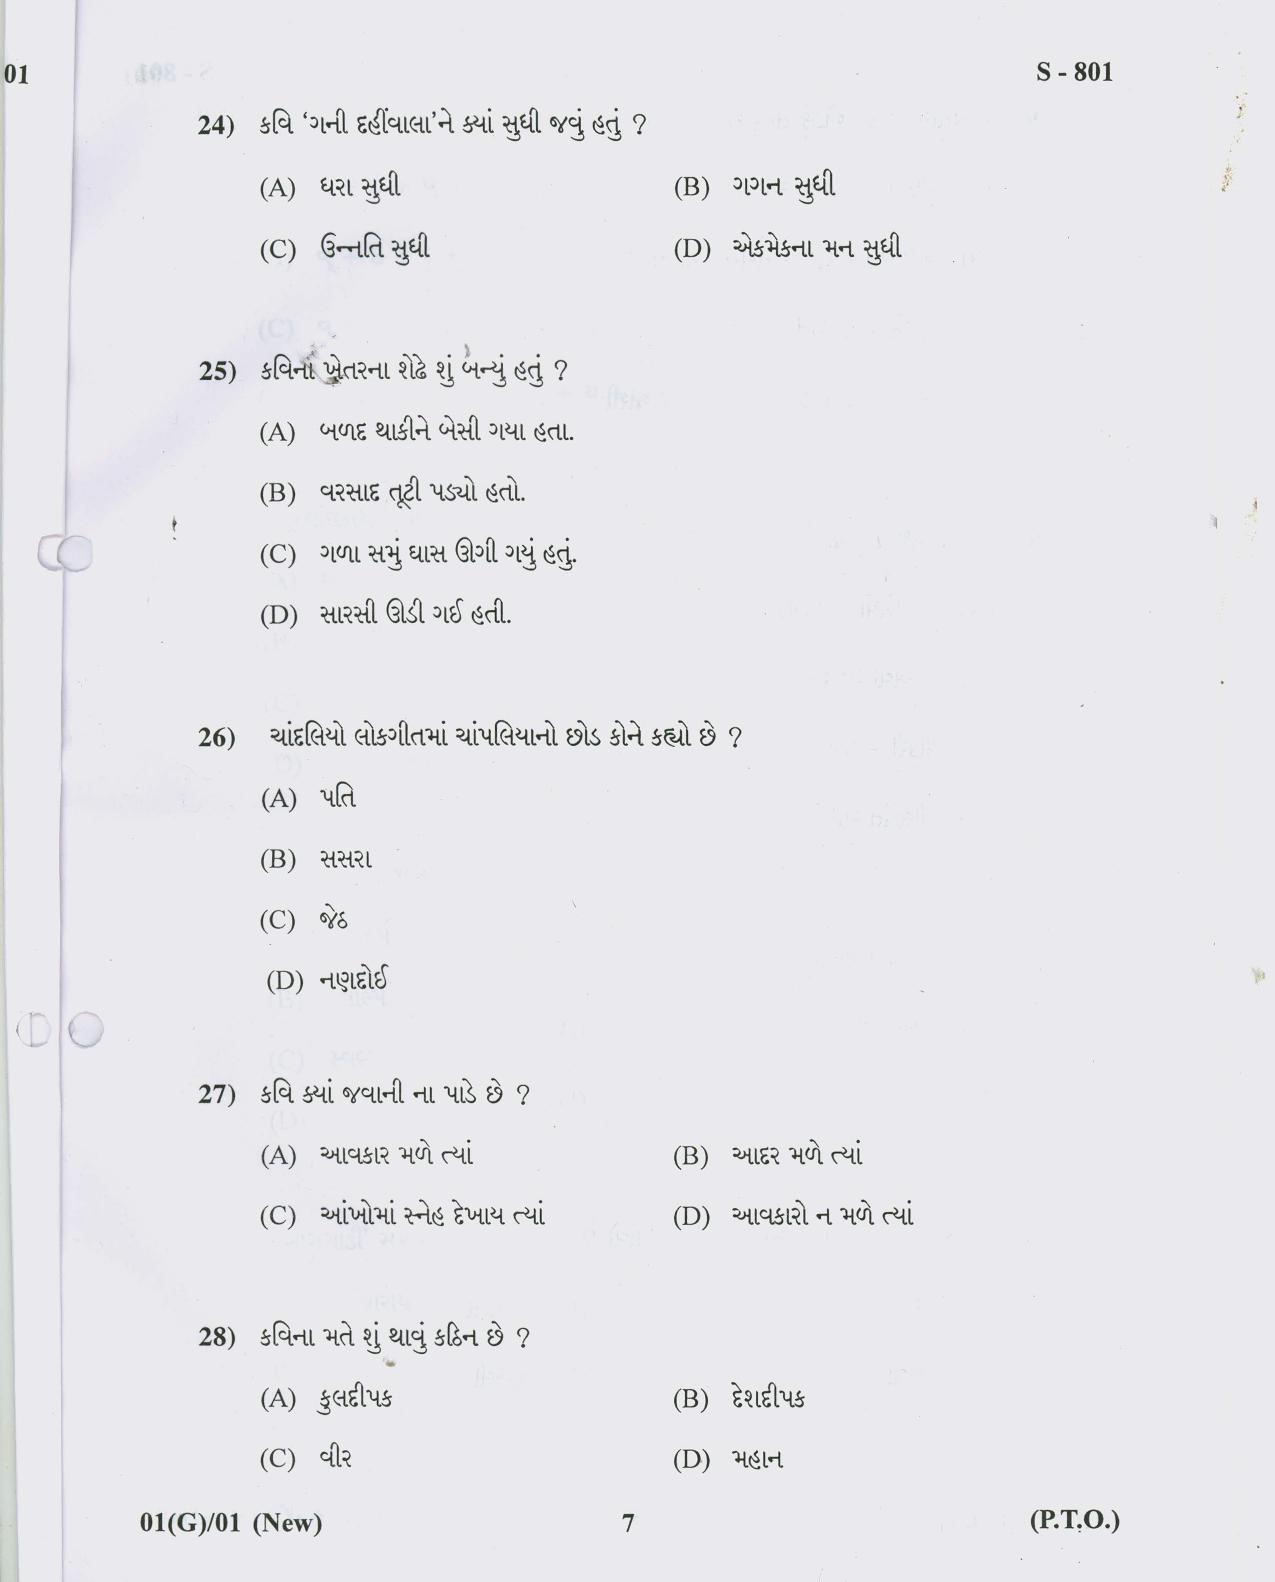 01
S - 801
24) કવિ ‘ગની દહીંવાલા’ને ક્યાં સુધી જવું હતું ?
(A) ધરા સુધી (B) ગગન સુધી
(C) ઉન્નતિ સુધી (D) એકમેકના મન સુધી
25) કવિના ખેતરના શેઢે શું બન્યું હતું ?
(A) બળદ થાકીને બેસી ગયા હતા.
(B) વરસાદ તૂટી પડ્યો હતો.
(C) ગળા સમું ઘાસ ઊગી ગયું હતું.
(D) સારસી ઊડી ગઈ હતી.
26) ચાંદલિયો લોકગીતમાં ચાંપલિયાનો છોડ કોને કહ્યો છે ?
(A) પતિ
(B) સસરા
(C) જેઠ
(D) નણદોઈ
27) કવિ ક્યાં જવાની ના પાડે છે ?
(A) આવકાર મળે ત્યાં (B) આદર મળે ત્યાં
(C) આંખોમાં સ્નેહ દેખાય ત્યાં (D) આવકારો ન મળે ત્યાં
28) કવિના મતે શું થાવું કઠિન છે ?
(A) કુલદીપક (B) દેશદીપક
(C) વીર (D) મહાન
01(G)/01 (New) 7 (P.T.O.)